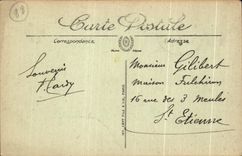 88
Carte Postale
Correspondance
Adresse
Souvenir
Hardy
Monsieur Gilibert
maison Fulchiron
16 rue des 3 Meules
St Etienne